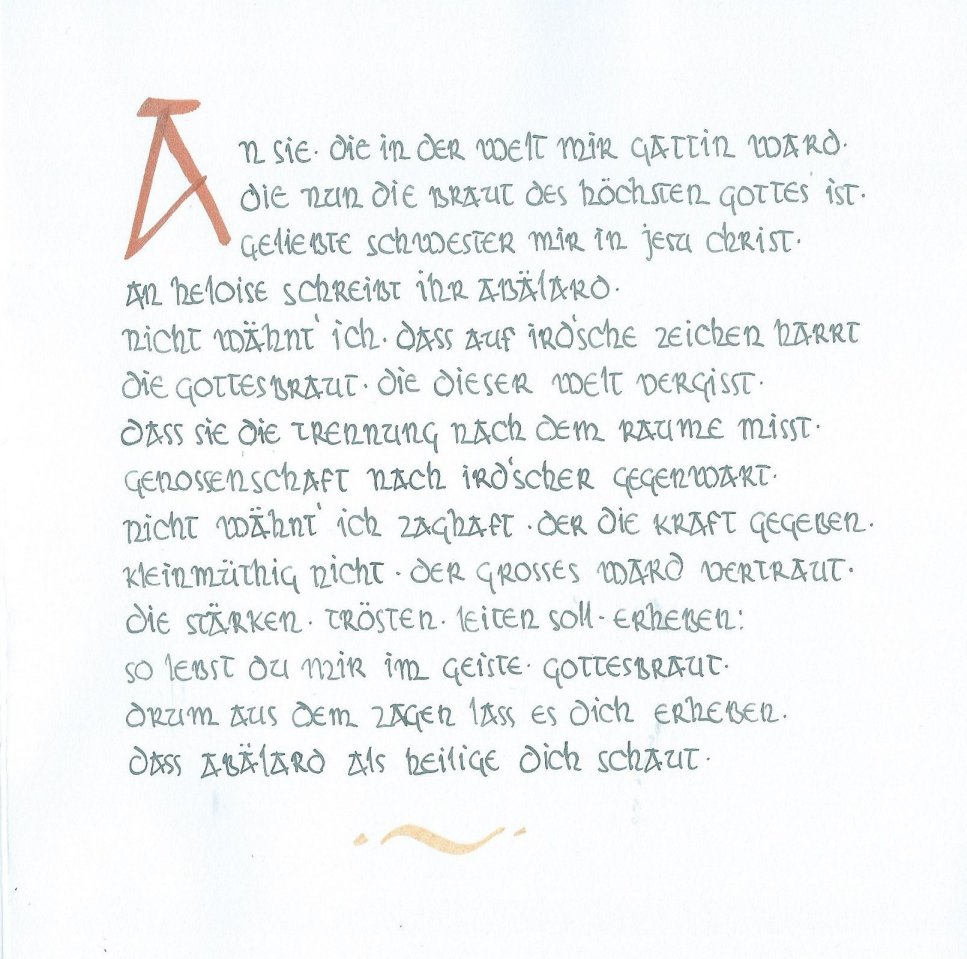 An sie. die in der welt mir gattin ward.
die nun die braut des höchsten gottes ist.
geliebte schwester mir in jesu christ.
an heloise schreibt ihr abälard.
nicht wähnt' ich. dass auf ird'sche zeichen harrt
die gottesbraut. die dieser welt vergisst.
dass sie die trennung nach dem raume misst.
genossenschaft nach ird'scher gegenwart.
nicht wähnt' ich zaghaft. der die kraft gegeben.
kleinmüthig nicht. der grosses ward vertraut.
die stärken. trösten. leiten soll. erheben:
so lebst du mir im geiste. gottesbraut.
drum aus dem zagen lass es dich erheben.
dass abälard als heilige dich schaut.